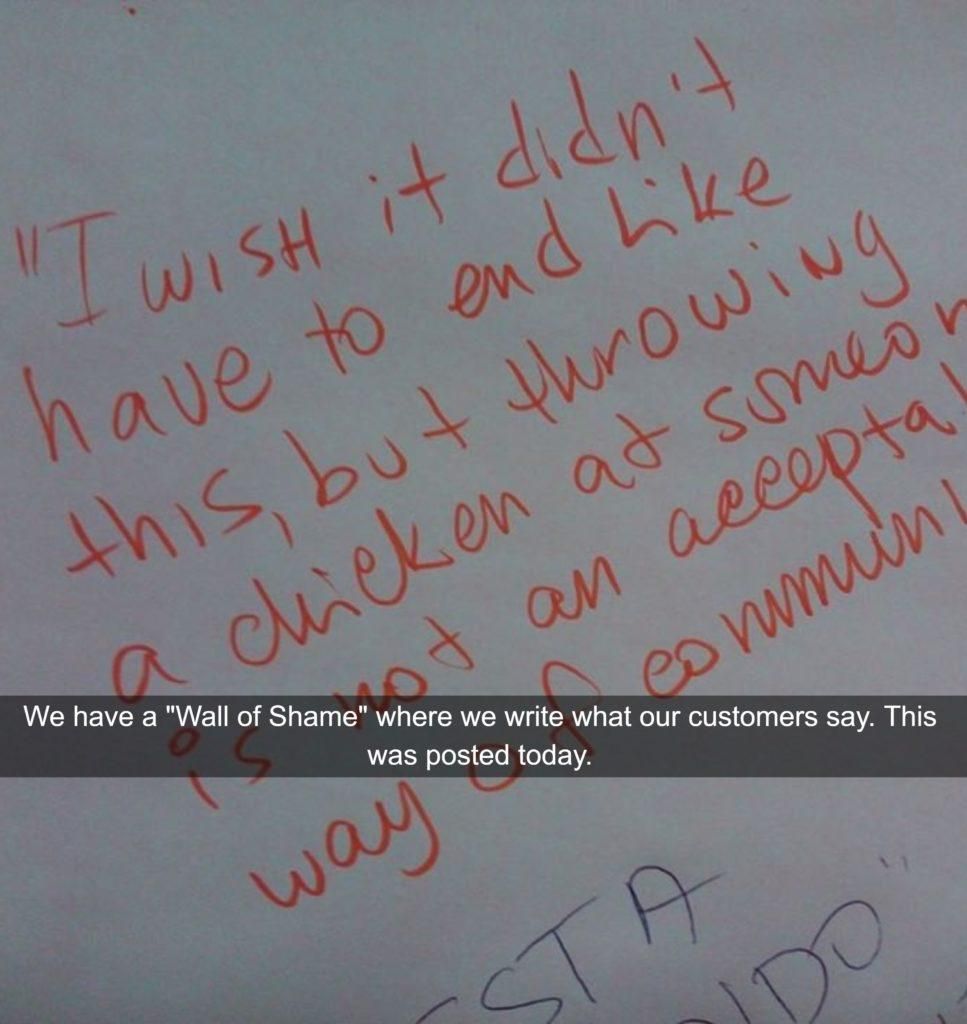 "I WISH it didn't
have to end like
this, but throwing
a chicken at someon
is not an accepta
way of communi
We have a "Wall of Shame" where we write what our customers say. This
was posted today.
ESTA
IDO"